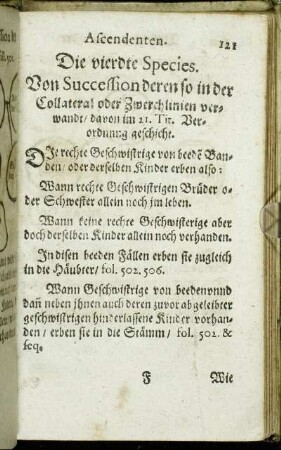 Ascendenten. 121
Die vierdte Species.
Von Succession deren so in der
Collateral oder Zwerchlinien ver-
wandt/ davon im 21. Tit. Ver-
ordnung geschicht.
DIe rechte Geschwistrige von beedẽ Ban-
den/ oder derselben Kinder erben also:
Wann rechte Geschwistrigen Brüder o-
der Schwester allein noch jm leben.
Wann keine rechte Geschwisterige aber
doch derselben Kinder allein noch verhanden.
In disen beeden Fällen erben sie zugleich
in die Häubter/ fol. 502. 506.
Wann Geschwistrige von beedenvnnd
dañ neben jhnen auch deren zuvor abgeleibter
geschwistrigen hinderlassene Kinder vorhan-
den/ erben sie in die Stämm/ fol. 502. &
seq.
F Wie